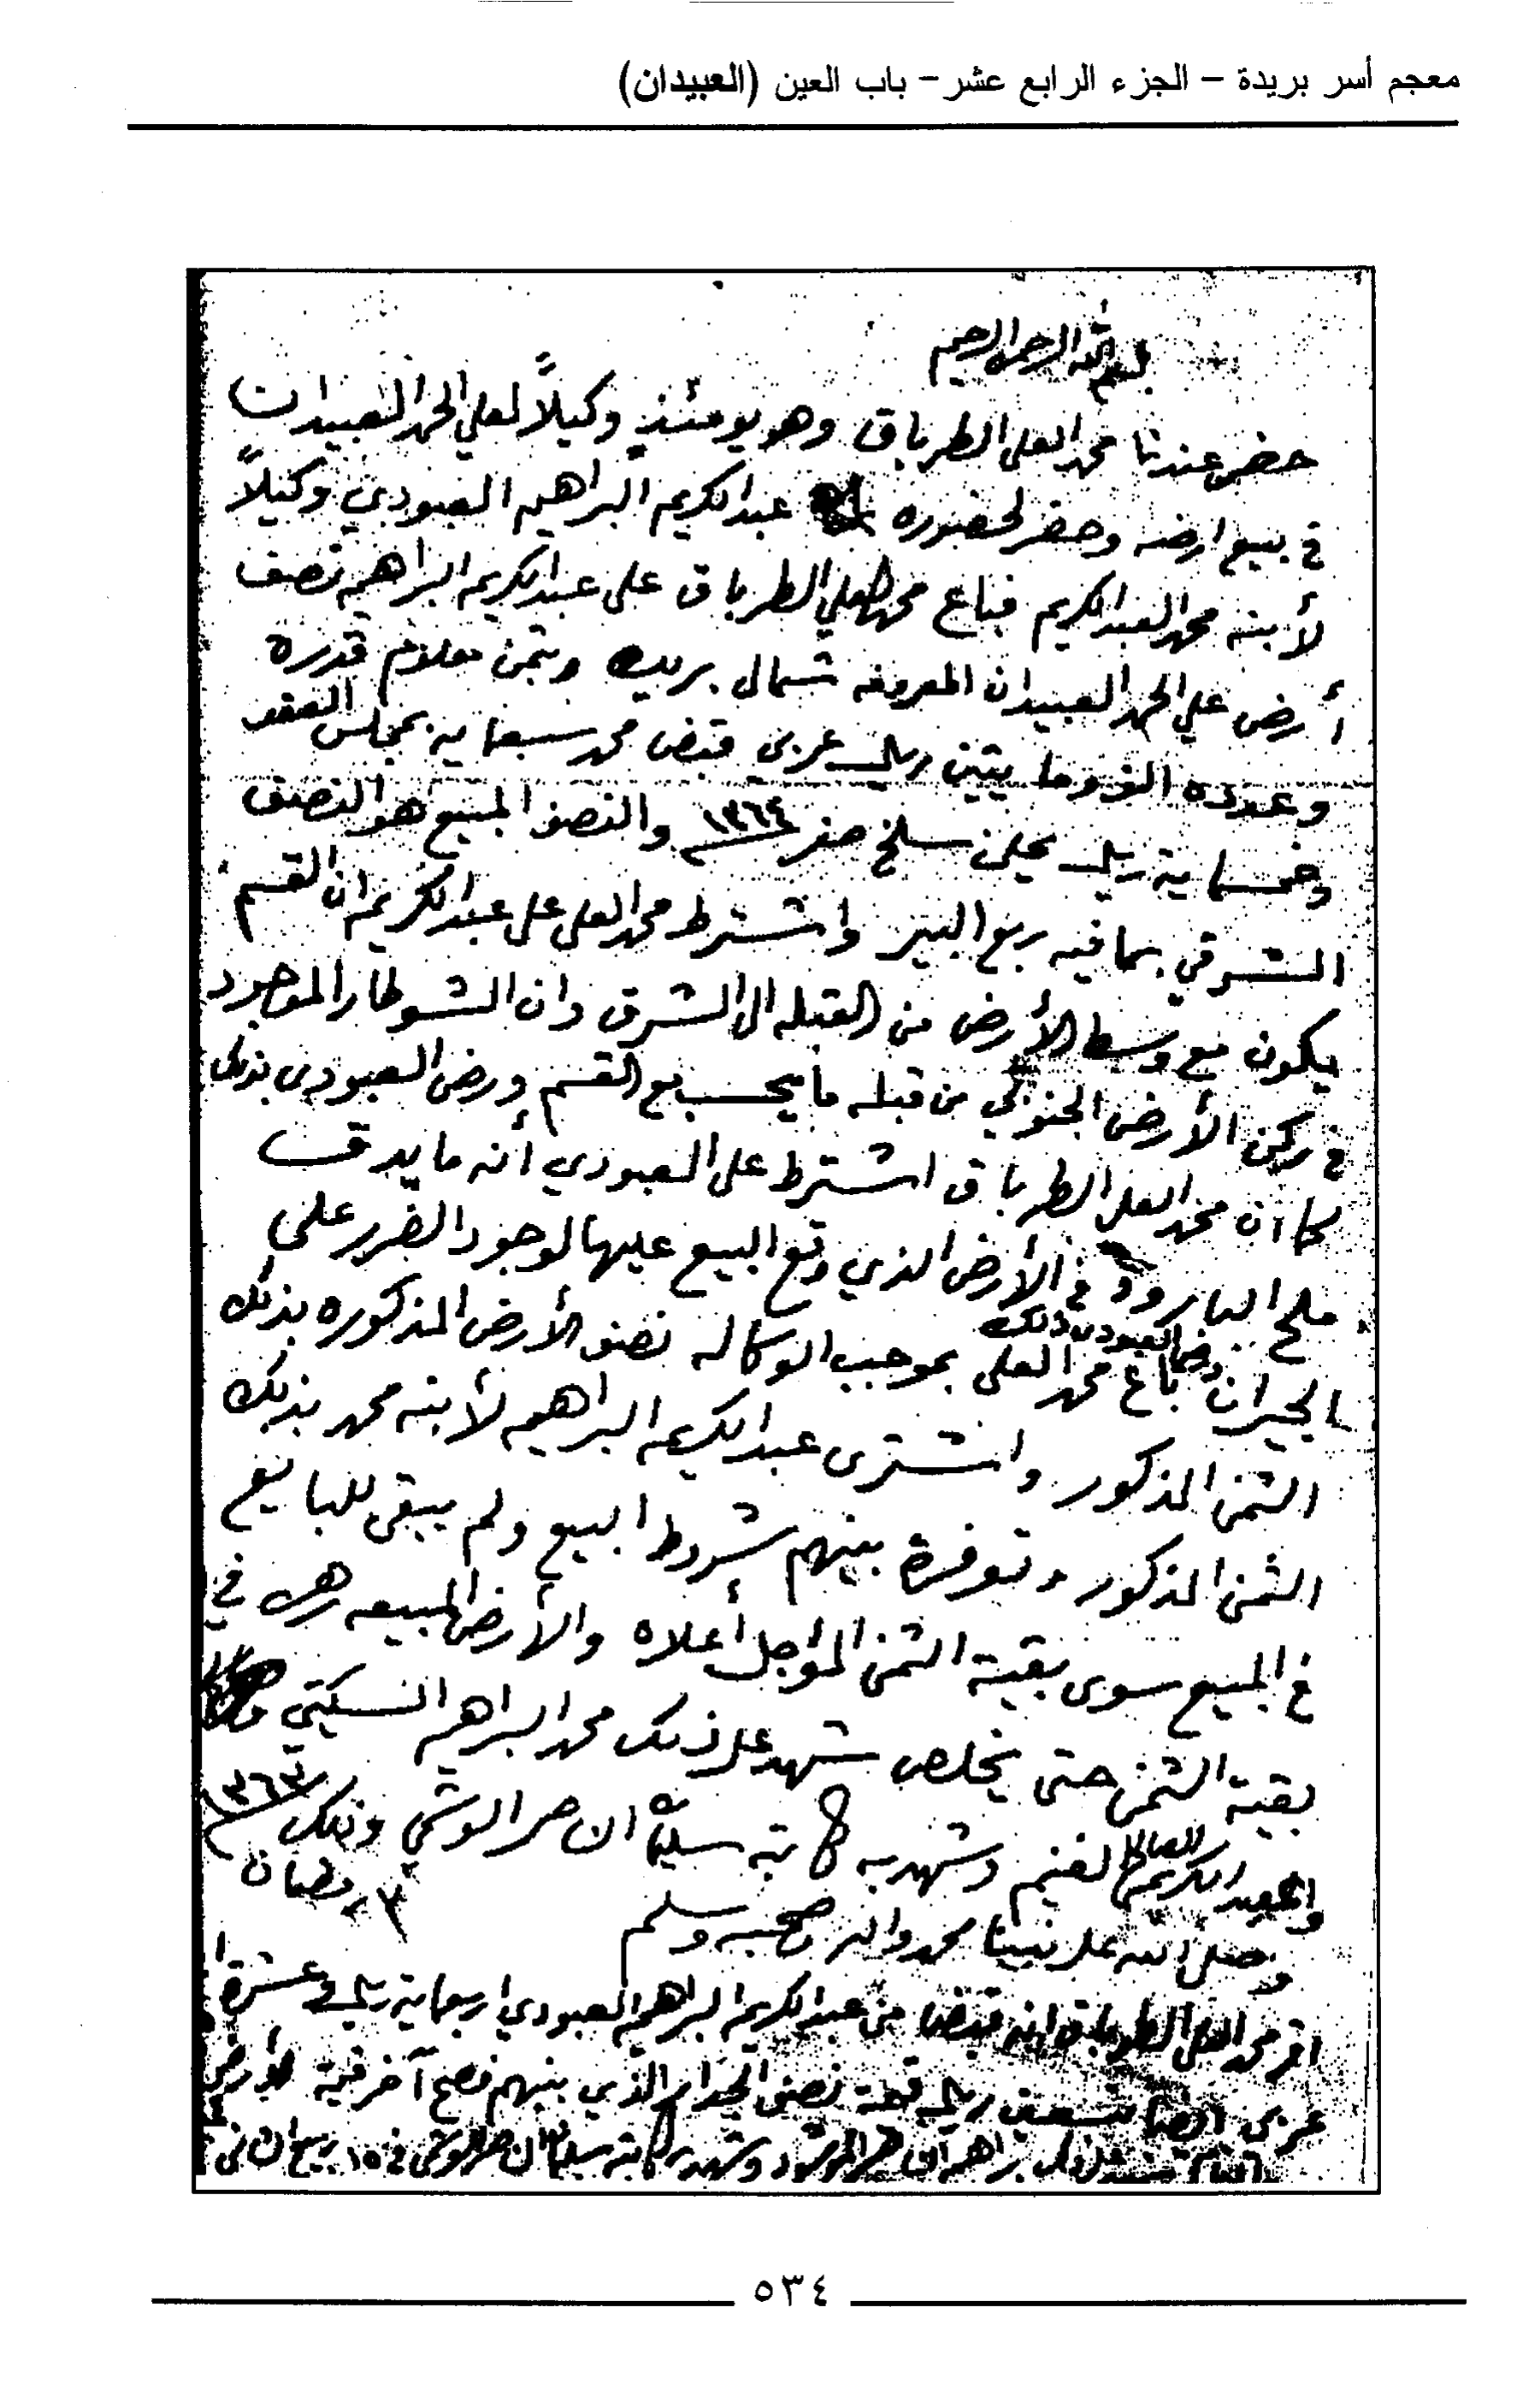 معجم أسر بريدة – الجزء الرابع عشر – باب العين (العبيدان)
بسم الله الرحمن الرحيم
حضر عندنا محمد العلي الطرباق وهو يومئذٍ وكيلاً لعلي الحمد العبيدان
في بيع ارضه وحضر لحضوره عبدالكريم البراهيم العبودي وكيلاً
لأبنه محمد العبدالكريم فباع محمد العلي الطرباق على عبدالكريم البراهيم نصف
أرض علي الحمد العبيدان المعروفه شمال بريده وبثمن معلوم قدره
وعدده الف ومايتين ريال عربي قبض محمد سبعماية بمجلس العقد
وخمسماية ريال يحلن سلخ صفر ١٣٦٤ والنصف المبيع هو النصف
الشرقي بما فيه ربع البير واشترط محمد العلي على عبدالكريم ان القسم
يكون مع وسط الأرض من القبله الى الشرق وان الشوطار الموجود
في ركن الأرض الجنوبي من قبله ما يحسب مع القسم ورضي العبودي بذلك
كما ان محمد العلي الطرباق اشترط على العبودي أنه ما يدق
ملح البارود في الأرض الذي وقع البيع عليها لوجود الضرر على
الجيران ورضي العبودي بذلك باع محمد العلي بموجب الوكاله نصف الأرض المذكوره بذلك
الثمن المذكور واشترى عبدالكريم البراهيم لأبنه محمد بذلك
الثمن المذكور وتوفرة بينهم شروط البيع ولم يبقى للبايع
في المبيع سوى بقية الثمن المؤجل أعلاه والأرض المبيعه رهن في
بقية الثمن حتى يخلص شهد على ذلك محمد البراهيم السكيتي
وعبدالكريم العنيم وشهد به كاتبه سليمان الناصر الوشمي وذلك ١٣٦٣
٣ رمضان
وصلى الله على نبينا محمد واله وصحبه وسلم
اقر محمد العلي الطرباق انه قبض من عبدالكريم البراهيم العبودي اربعماية ريال وعشرة
عربي ايضا تسعين ريال قيمة نصف الجدار الذي بينهم فصح آخر قيمة الأرض
وشهد به كاتبه سليمان الناصر الوشمي في ١٥ ربيع الثاني
٥٣٤